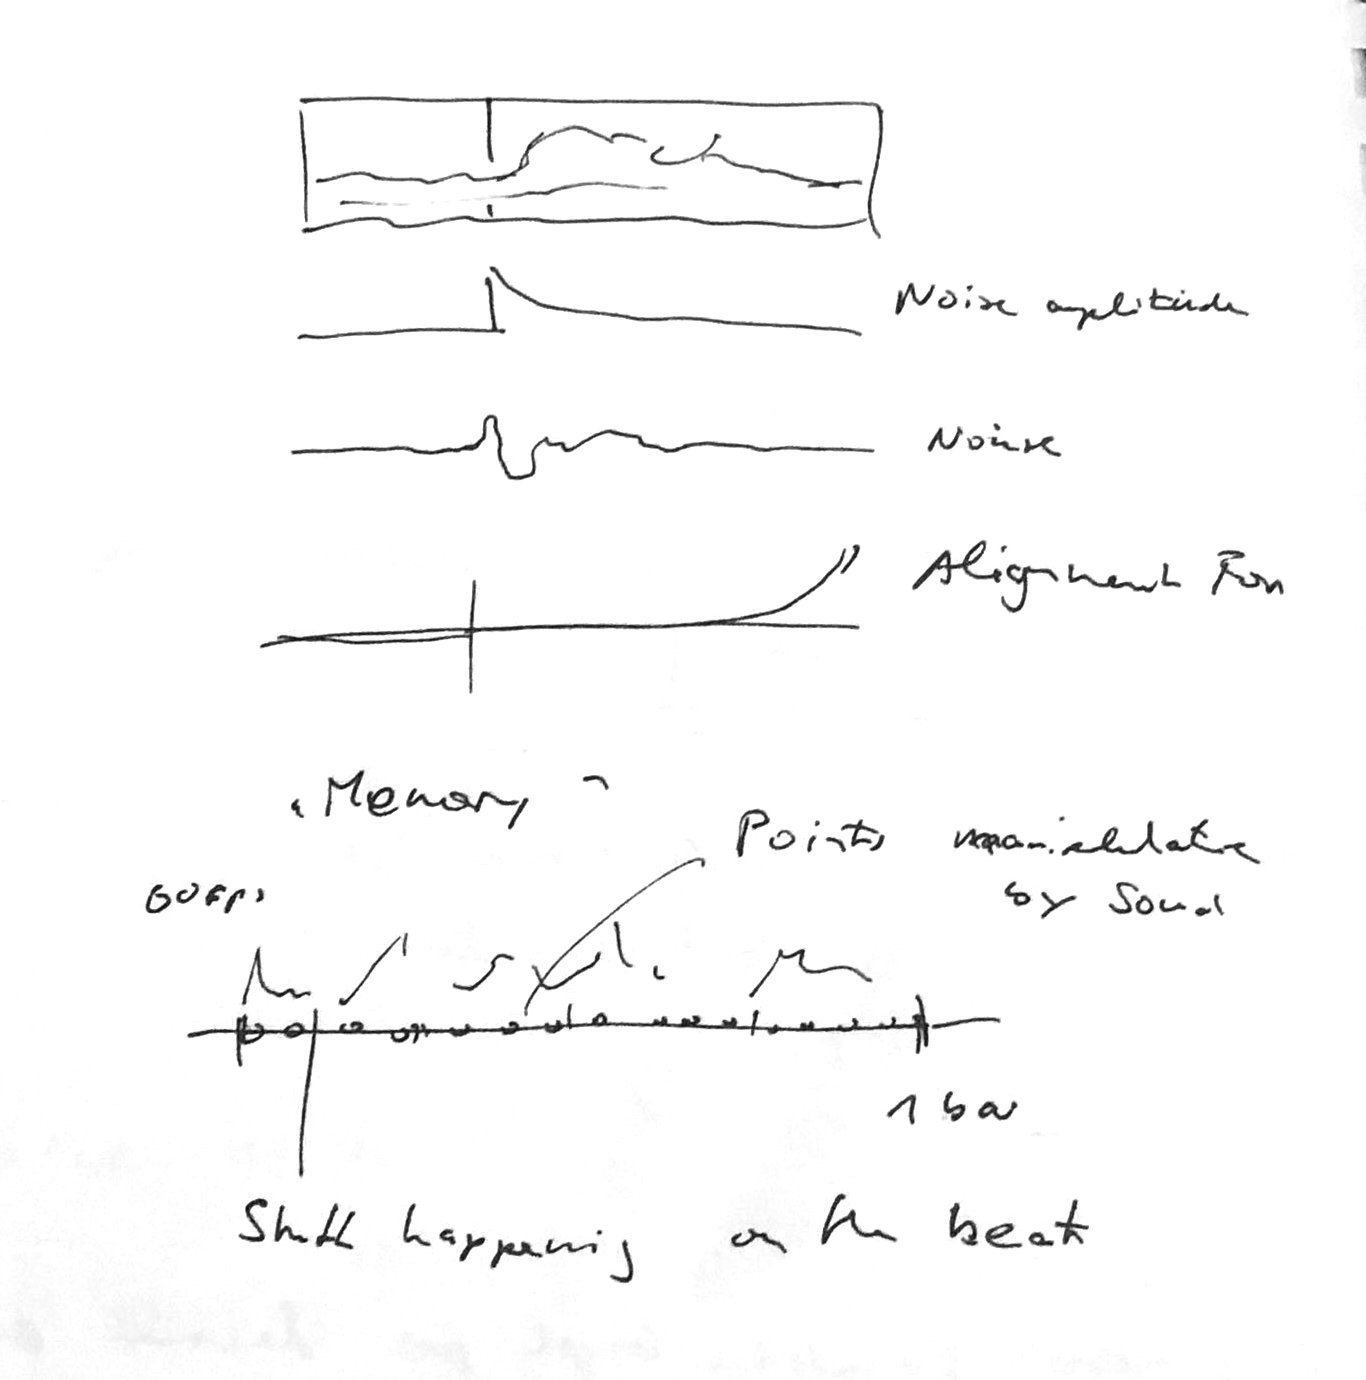 Noise amplitude
Noise
Alignment
"Memory"
Points manipulatice
by Sound
60 fps
1 bar
Stuff happening on the beat